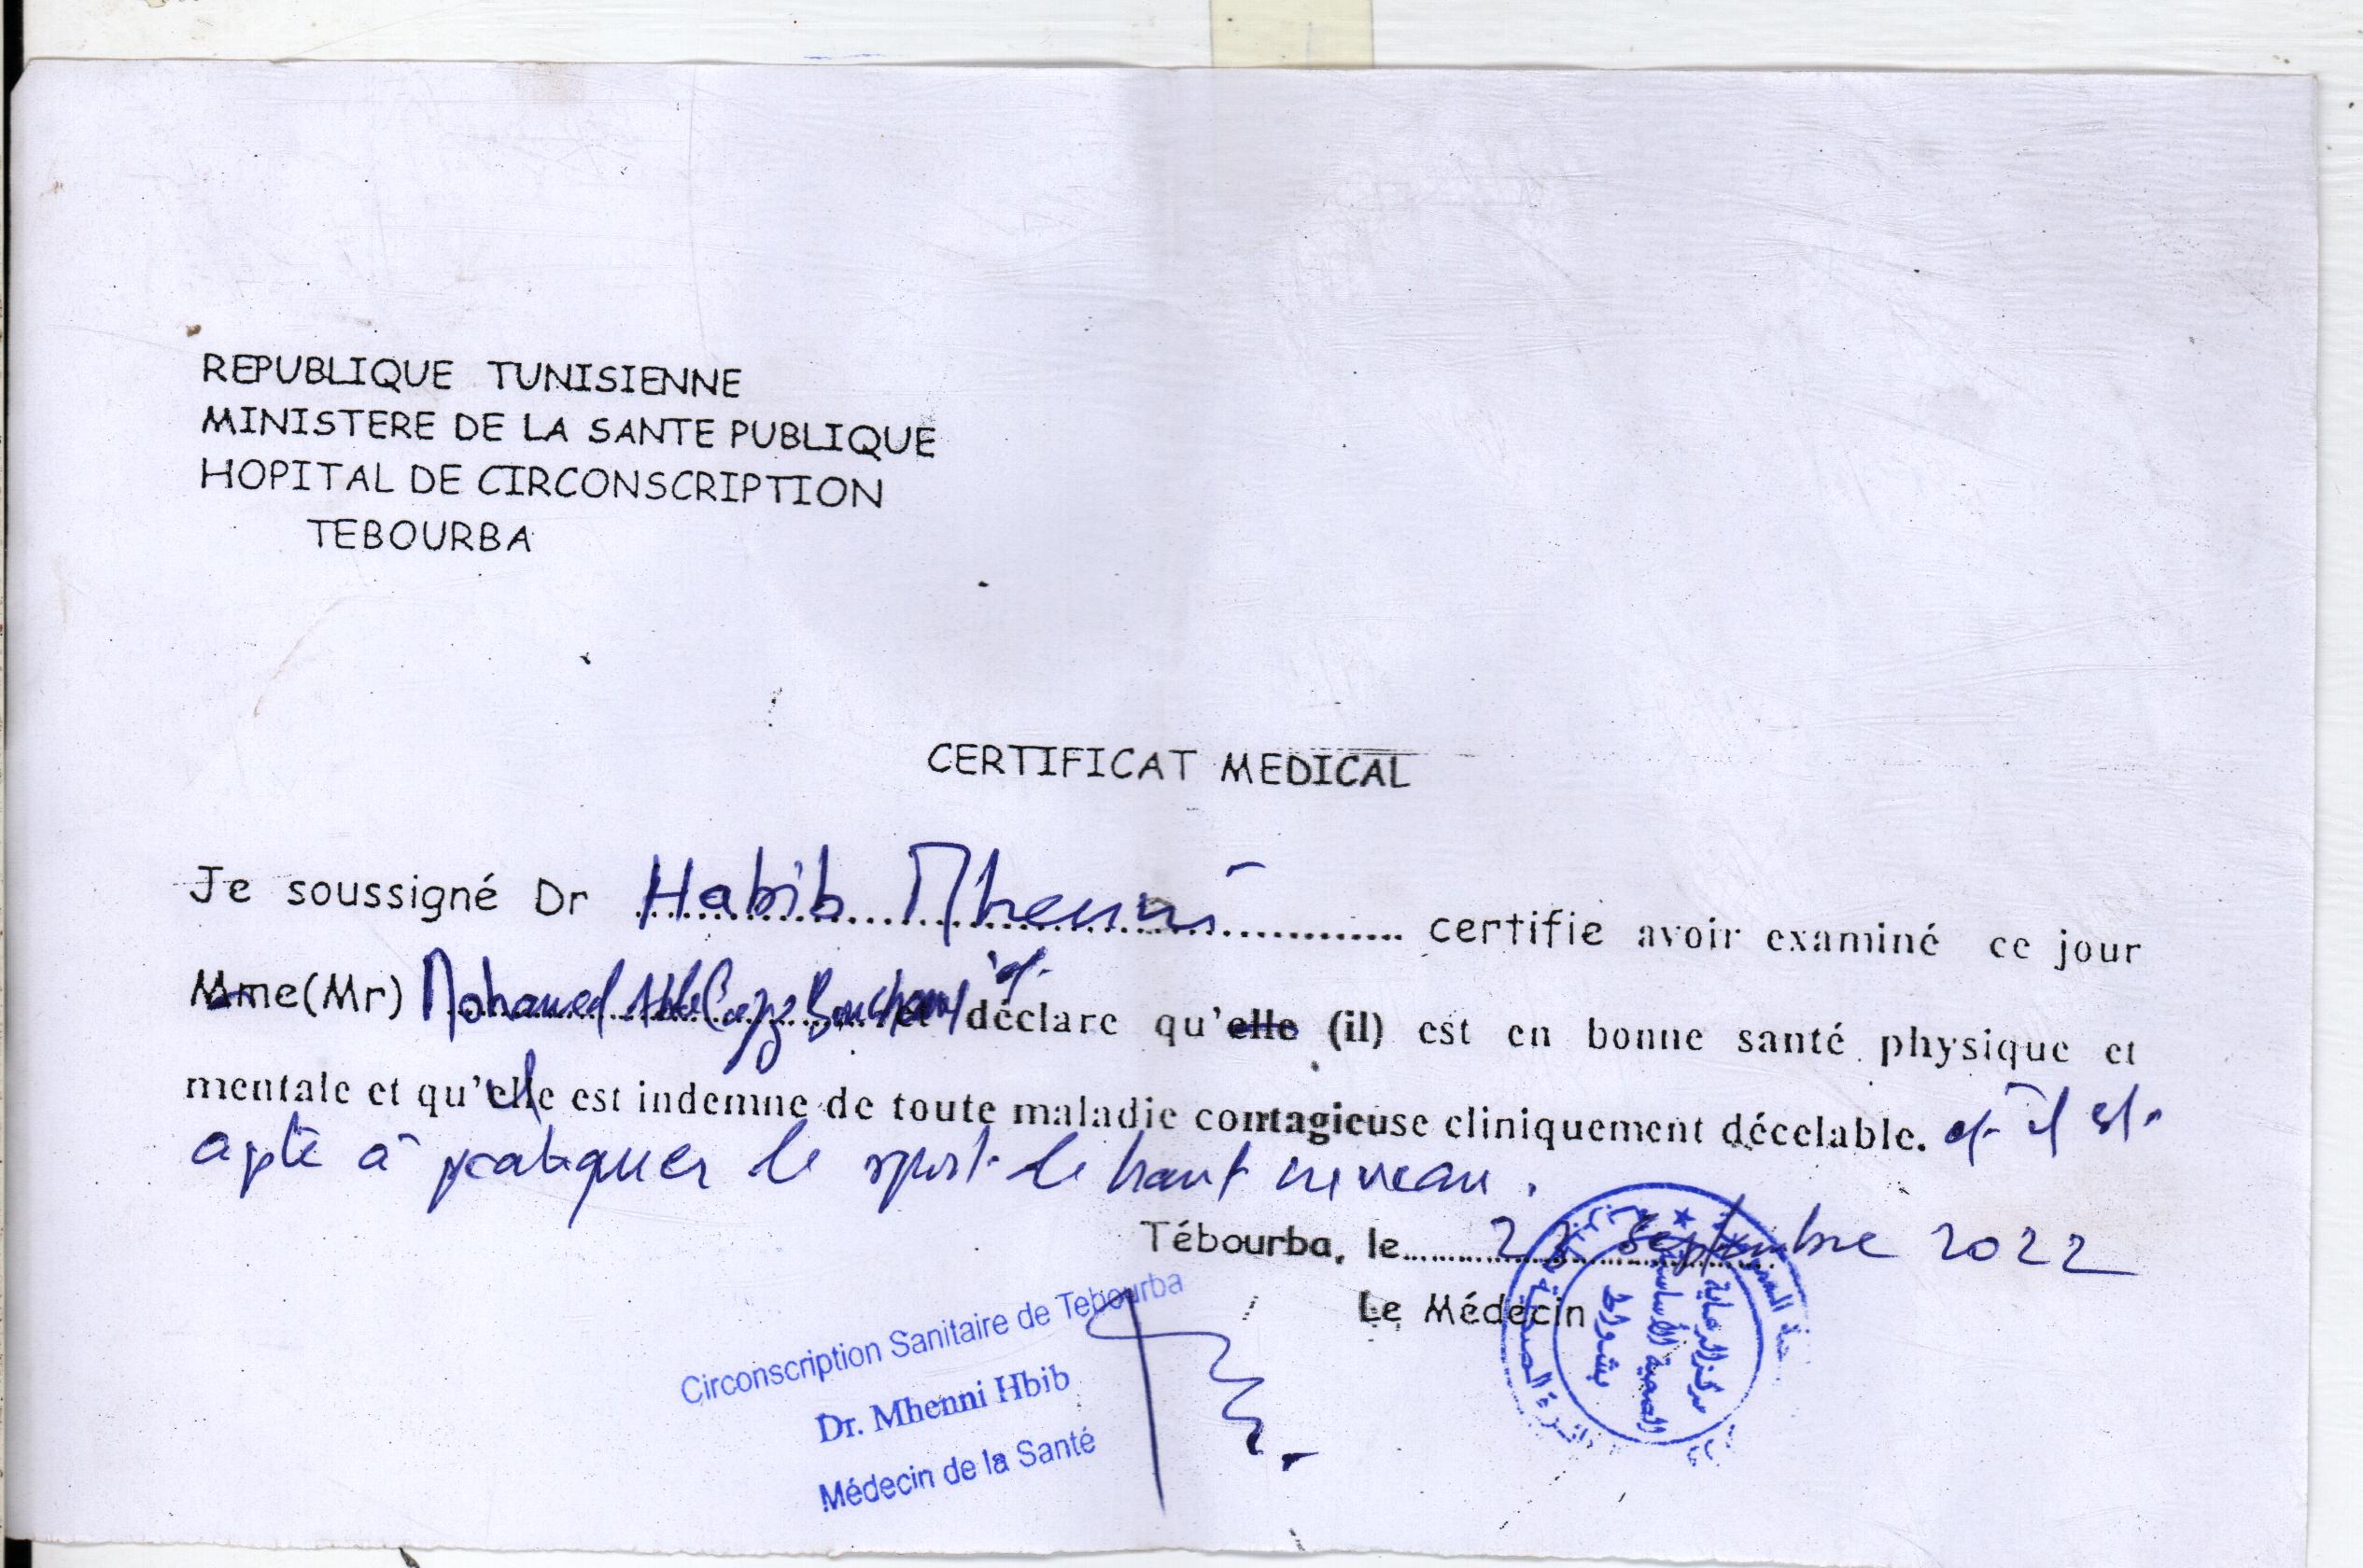 REPUBLIQUE TUNISIENNE
MINISTERE DE LA SANTE PUBLIQUE
HOPITAL DE CIRCONSCRIPTION
TEBOURBA
CERTIFICAT MEDICAL
Je soussigné Dr Habib Mhenni certifie avoir examiné ce jour
Mme(Mr) Mohamed et déclare qu'elle (il) est en bonne santé physique et
mentale et qu'elle est indemne de toute maladie contagieuse cliniquement décelable. et il est
apte à pratiquer le sport de haut niveau.
Tébourba, le 22 Septembre 2022
Le Médecin
Circonscription Sanitaire de Tebourba
Dr. Mhenni Hbib
Médecin de la Santé
مركز الرعاية
الصحية الأساسية
بشواط